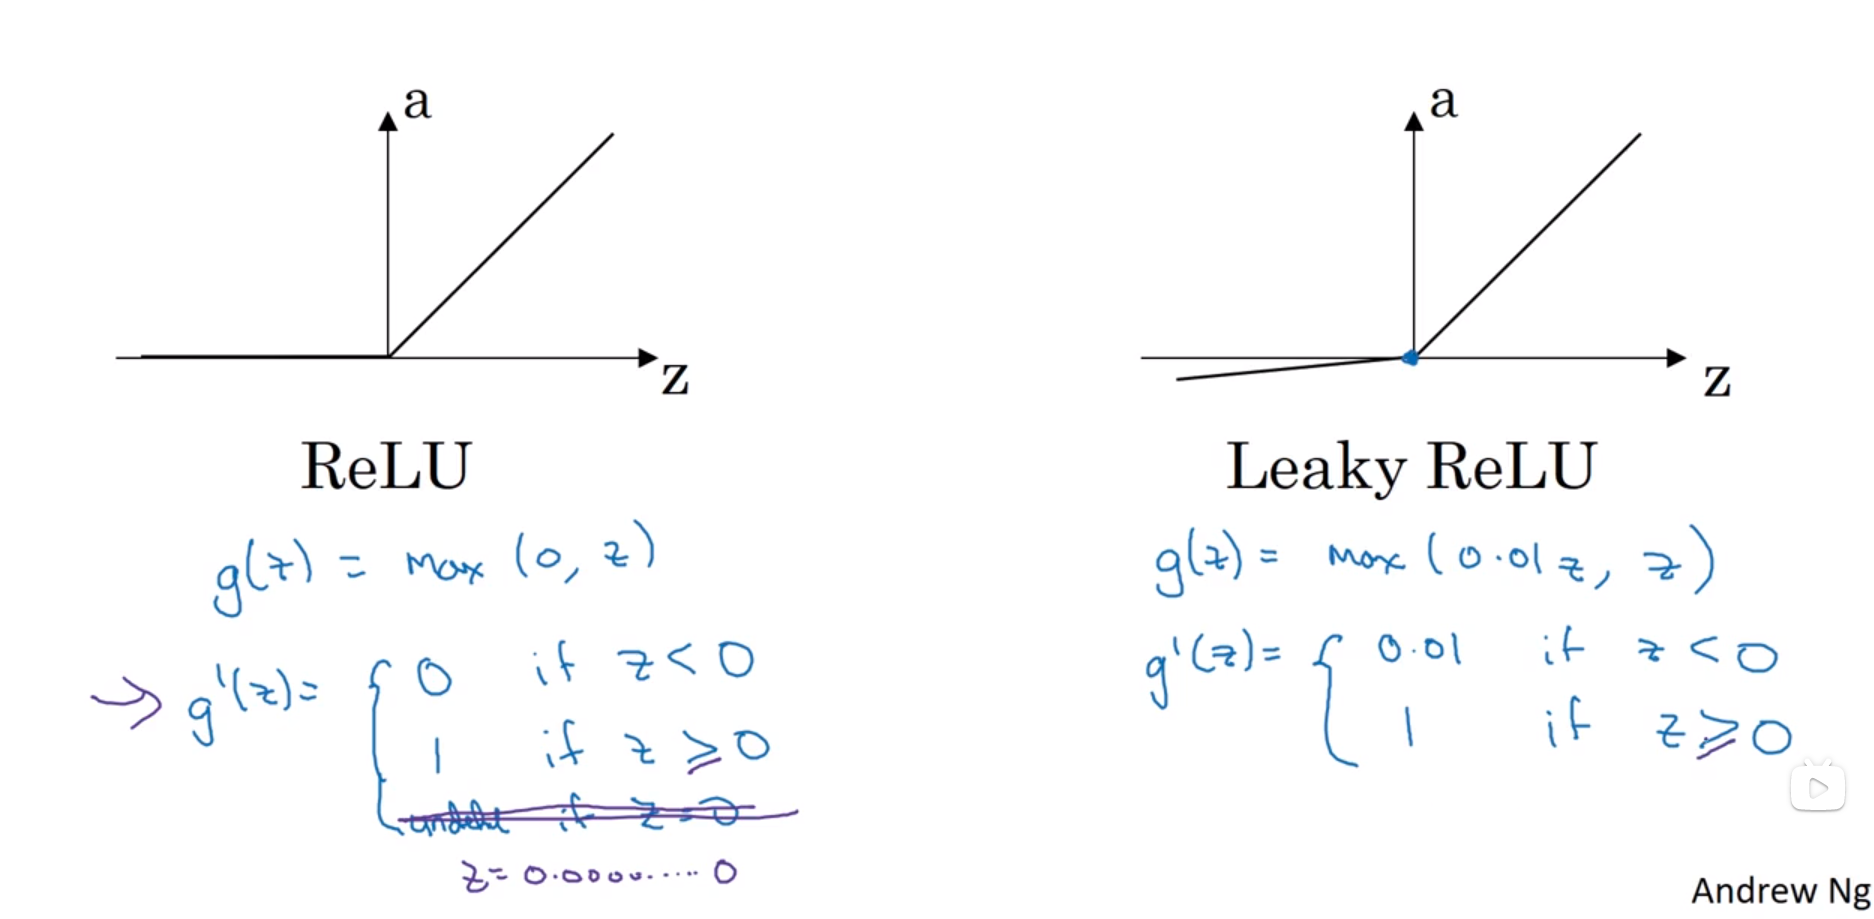 a
z
ReLU
g(z) = max (0, z)
→ g'(z) = { 0 if z < 0
1 if z ≥ 0
if z = 0
z = 0.0000......0
a
z
Leaky ReLU
g(z) = max (0.01z, z)
g'(z) = { 0.01 if z < 0
1 if z ≥ 0
Andrew Ng